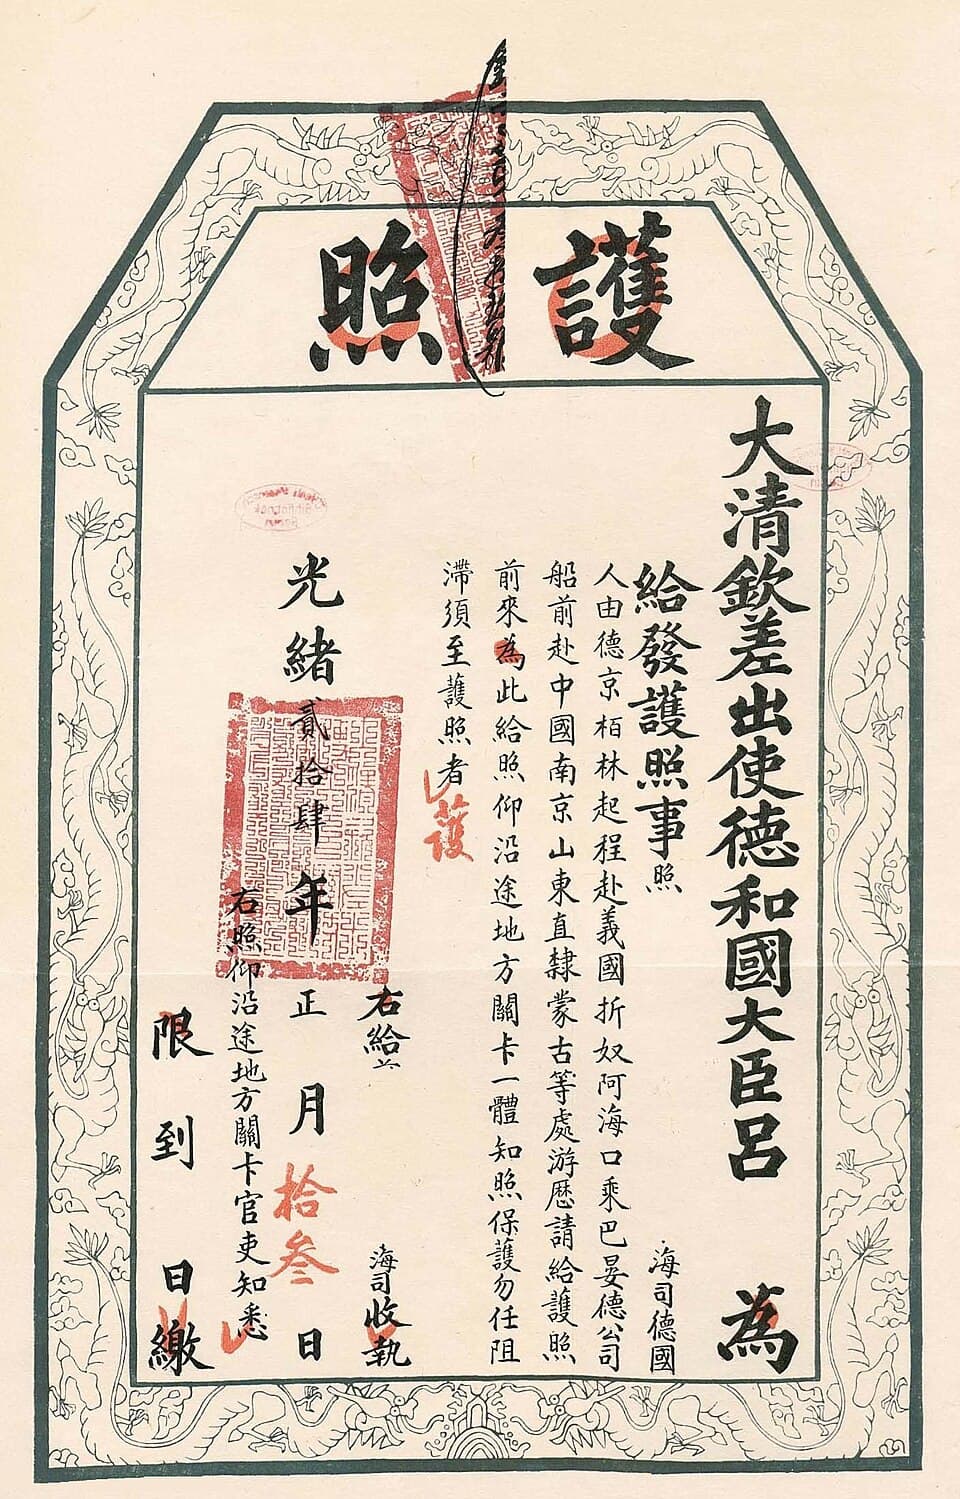 護照
大清欽差出使德和國大臣呂 為
給發護照事照 海司德國
人由德京柏林起程赴義國折奴阿海口乘巴晏德公司
船前赴中國南京山東直隸蒙古等處游歷請給護照
前來為此給照仰沿途地方關卡一體知照保護勿任阻
滯須至護照者
護
右給 海司收執
光緒貳拾肆年正月拾叁日
右照仰沿途地方關卡官吏知悉
限 到 日繳